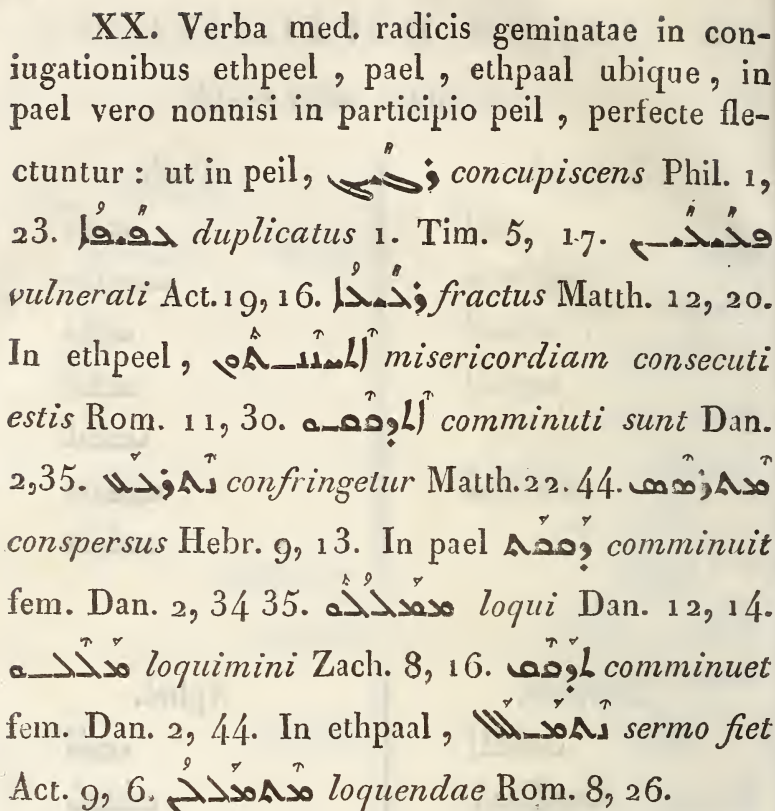 XX. Verba med. radicis geminatae in con-
iugationibus ethpeel , pael , ethpaal ubique , in
pael vero nonnisi in participio peil , perfecte fle-
ctuntur : ut in peil, ܪܓܺܝܓ concupiscens Phil. 1,
23. ܥܦܺܝܦܳܐ duplicatus 1. Tim. 5, 17.
vulnerati Act. 19, 16. ܪܥܺܝܥܳܐ fractus Matth. 12, 20.
In ethpeel , ܐܶܬܚܢܶܢܬܽܘܢ misericordiam consecuti
estis Rom. 11, 30. ܐܶܬܕܩܶܩܘ comminuti sunt Dan.
2,35. ܢܶܬܪܥܰܥ confringetur Matth. 22. 44. ܡܶܬܪܣܶܣ
conspersus Hebr. 9, 13. In pael ܕܰܩܩܰܬ comminuit
fem. Dan. 2, 34 35. ܡܡܰܠܳܠܽܘ loqui Dan. 12, 14.
ܡܰܠܶܠܘ loquimini Zach. 8, 16. ܬܕܰܩܶܩ comminuet
fem. Dan. 2, 44. In ethpaal , ܢܶܬܡܰܠܰܠ sermo fiet
Act. 9, 6. ܡܶܬܡܰܠܠܳܢ loquendae Rom. 8, 26.